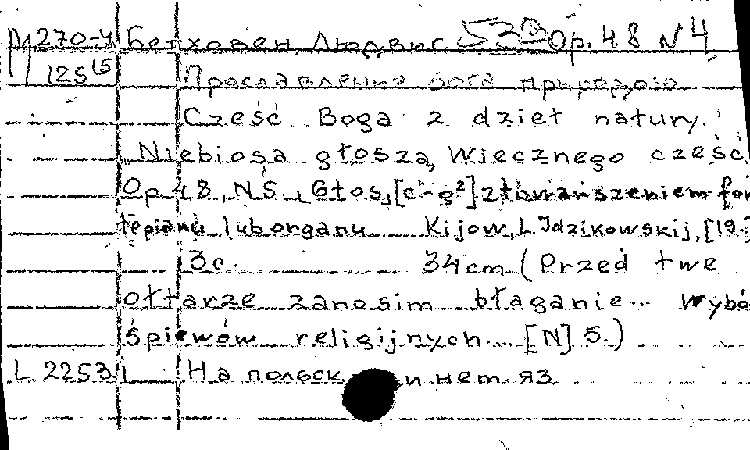 М 270-4 Бетховен Людвиг 530 Op. 48 N 4
125(5 Прославление бога природою
Cześć Boga z dzieł natury.
Niebiosa głoszą, Wiecznego cześć
Op. 48, N.5. Głos, [c-g²] z towarzyszeniem for
tepianu lub organu Kijow, L. Idzikowskij, [19
3c. 34cm (Przed twe
ołtarze zanosim błaganie... Wybó
śpiewów religijnych ... [N] 5.)
L 2253 На польск и нем яз